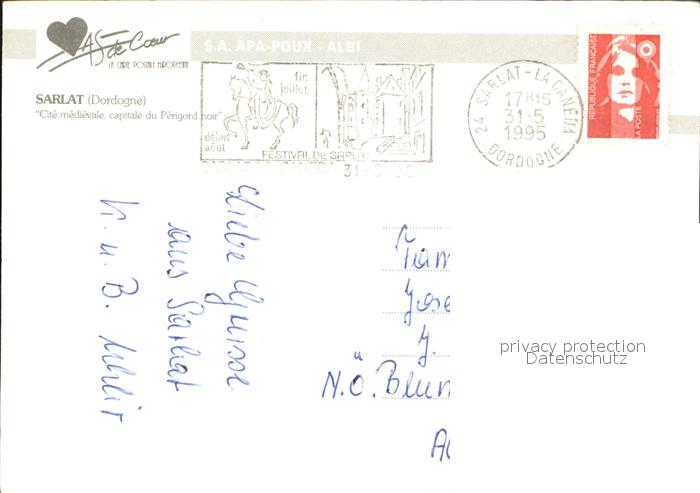 As de Cœur
LA CARTE POSTALE EUROPEENNE
S.A. APA-POUX - ALBI
SARLAT (Dordogne)
"Cité médiévale, capitale du Périgord noir"
fin
juillet
début
août
FESTIVAL DE SARLAT
24 SARLAT-LA-CANEDA
17H15
31-5
1995
DORDOGNE
REPUBLIQUE FRANÇAISE
LA POSTE
Liebe Grüsse
aus Sarlat
H. u. B.
Fam
Jose
J.
N.Ö.
privacy protection
Datenschutz